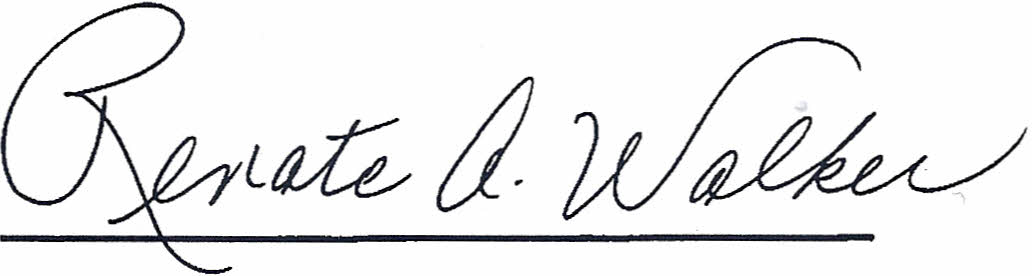 Renate A. Walker